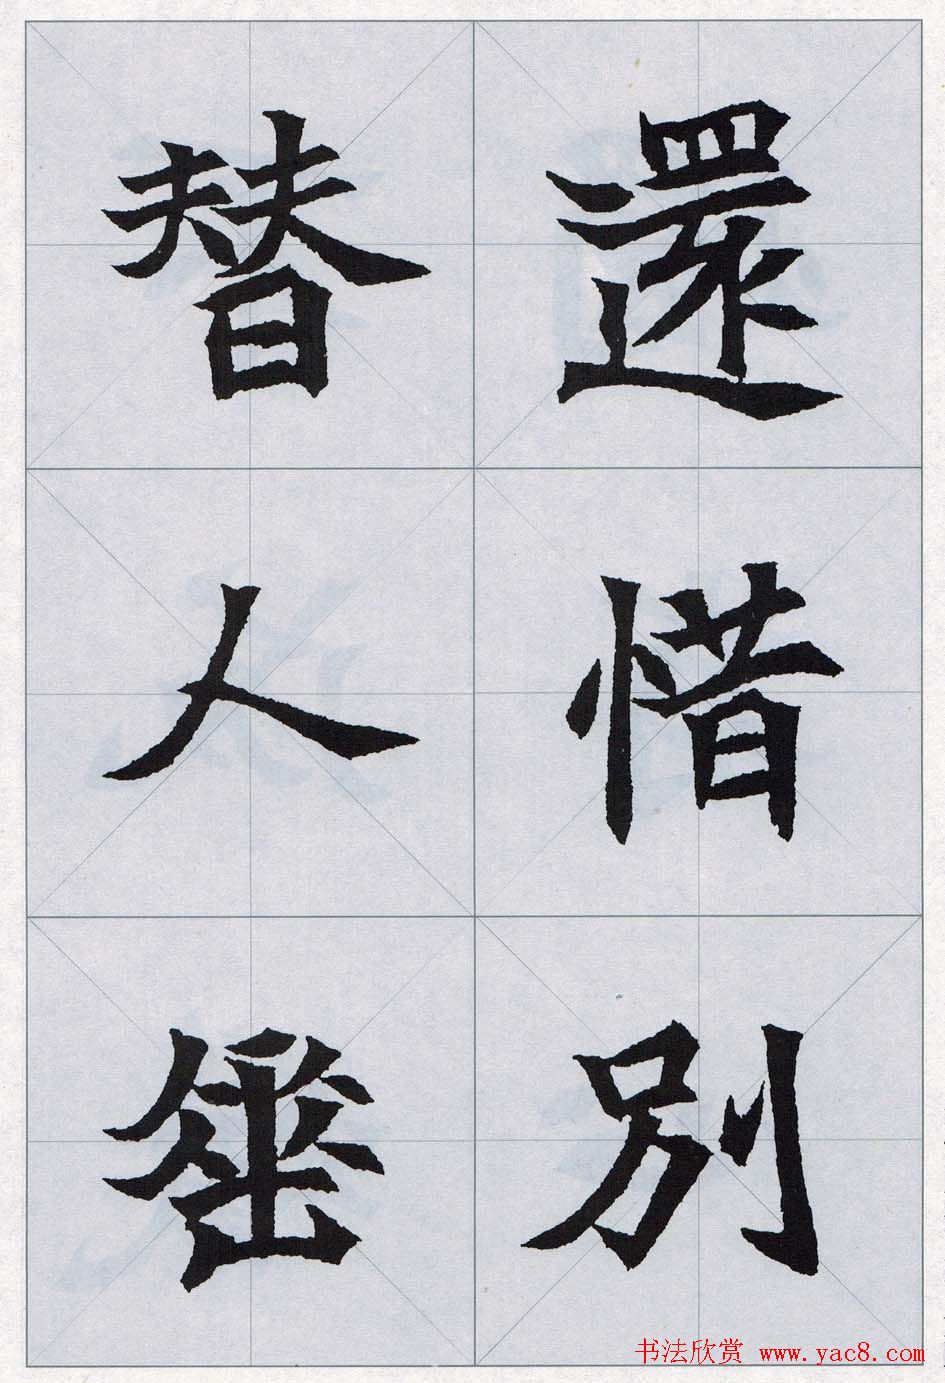 還惜別
替人垂
书法欣赏 www.yac8.com